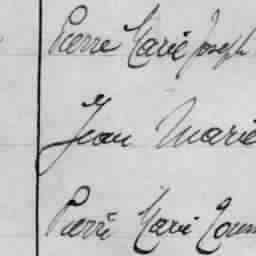 Pierre Marie Joseph
Jean Marie
Pierre Marie